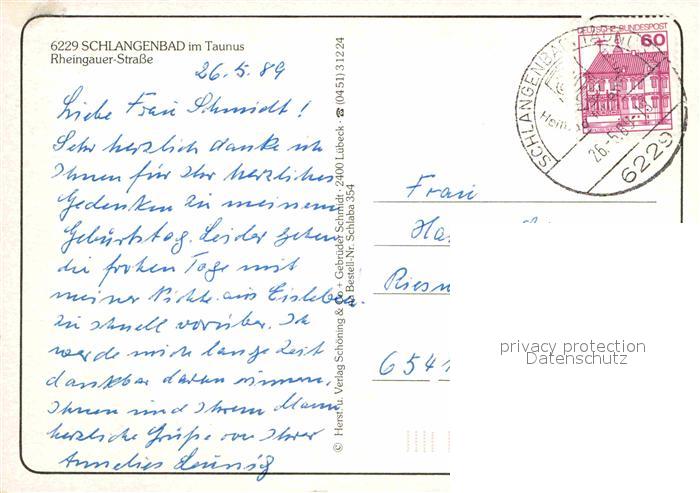 6229 SCHLANGENBAD im Taunus
Rheingauer-Straße
26.5.89
Liebe Frau Schmidt!
Sehr herzlich danke ich
Ihnen für Ihr herzliches
Gedenken zu meinem
Geburtstag. Leider gehen
die frohen Tage mit
meiner Nichte aus Eisleben
zu schnell vorüber. Ich
werde mich lange Zeit
dankbar daran erinnern.
Ihnen und Ihrem Mann
herzliche Grüße von Ihrer
Annelies
© Herst. u. Verlag Schöning & Co + Gebrüder Schmidt · 2400 Lübeck · ☎ (04 51) 3 12 24
Bestell-Nr. Schlaba 354
DEUTSCHE BUNDESPOST
60
SCHLANGENBAD
26.-5.89
6229
Frau
Ha
Riesw
6541
privacy protection
Datenschutz